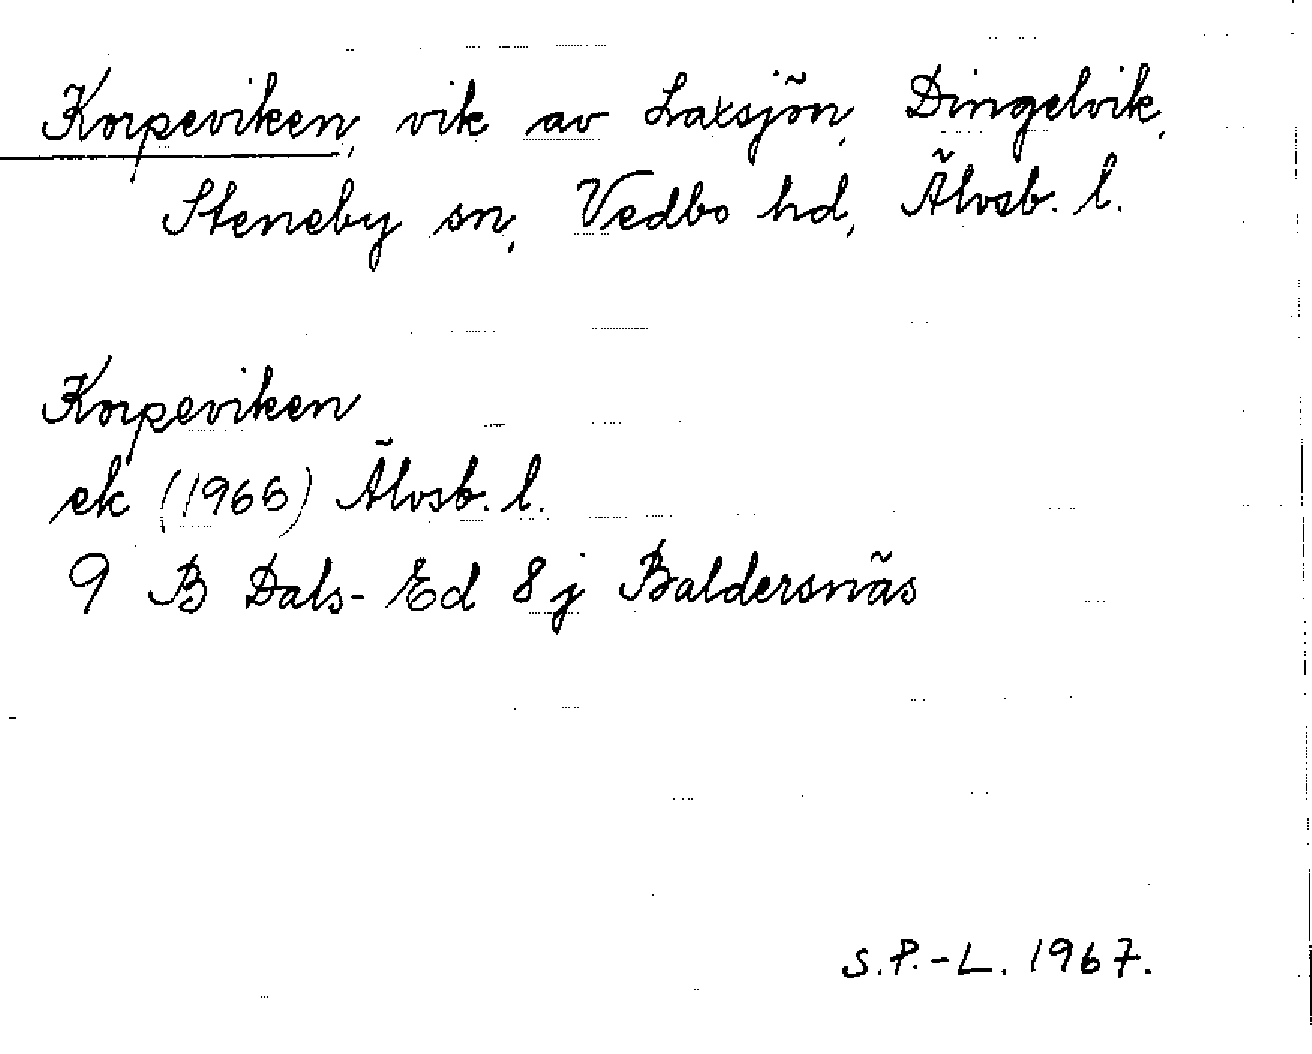 Korpeviken, vik av Laxsjön, Dingelvik,
Steneby sn, Vedbo hd, Älvsb. l.
Korpeviken
ek (1966) Älvsb. l.
9 B Dals-Ed 8j Baldersnäs
S.P.-L. 1967.